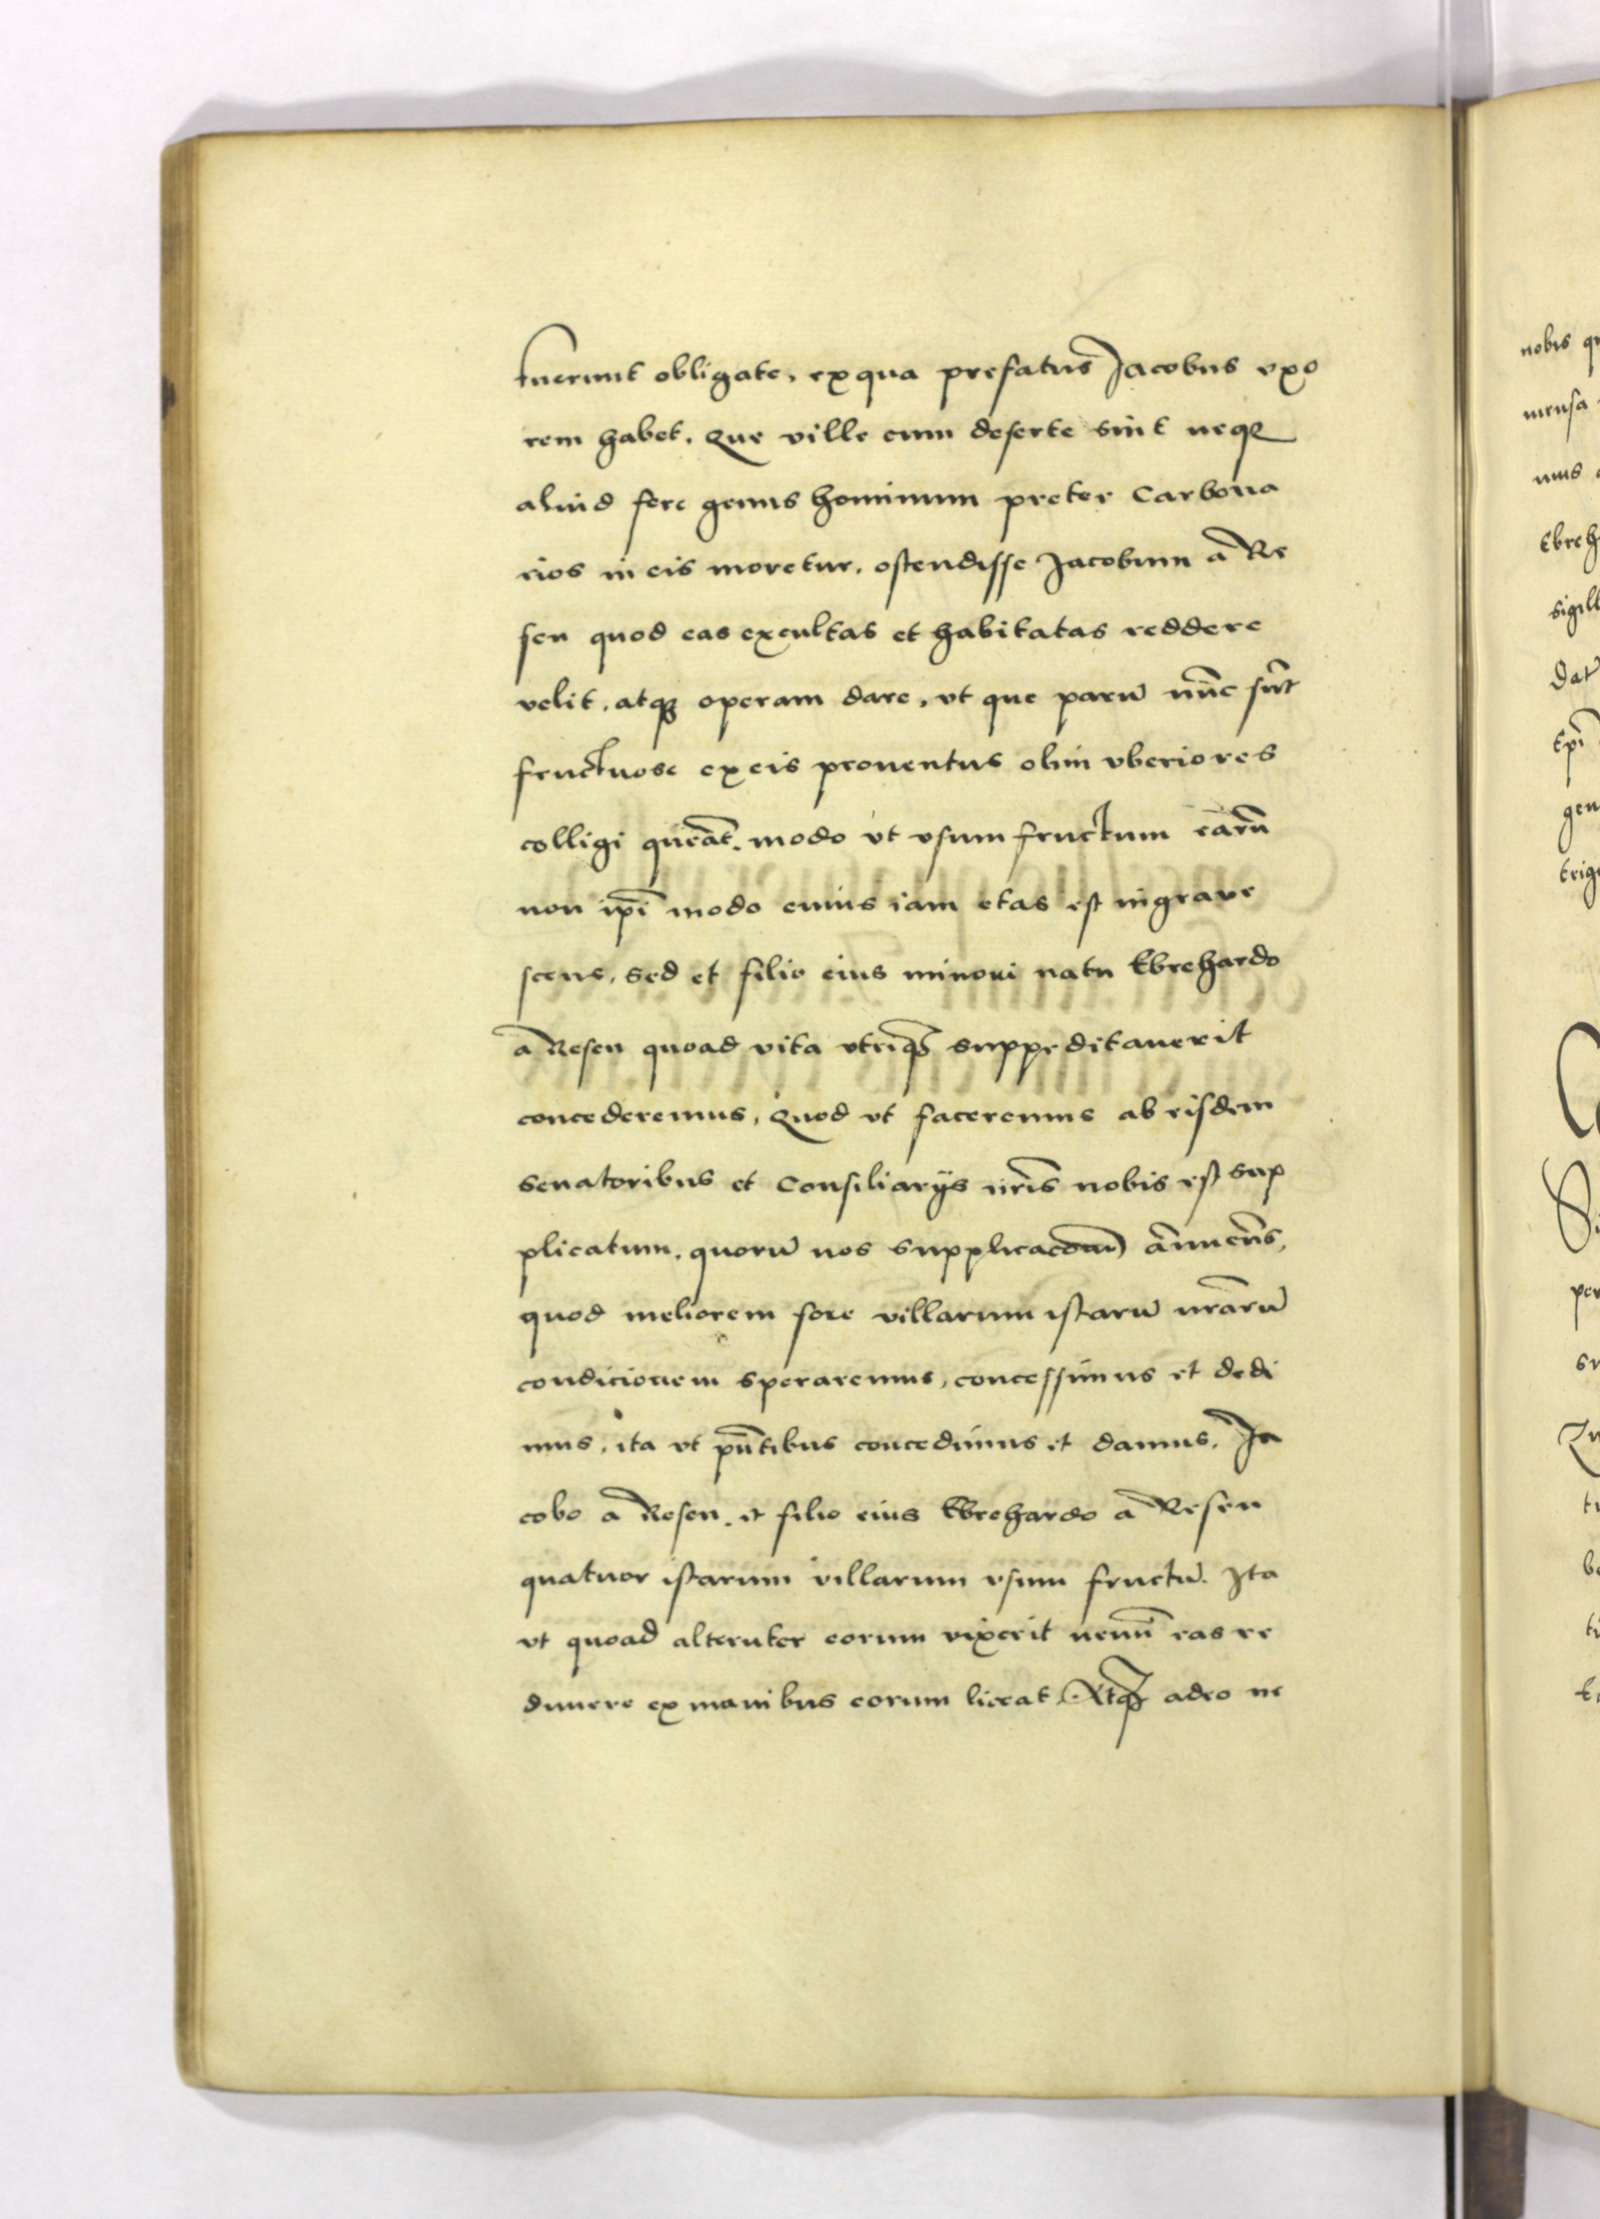 fuerunt obligate, ex qua prefatus Jacobus vxo
rem habet. Que ville cum deserte sint neqꝫ
aliud fere genus hominum preter Carbona
rios in eis moretur, ostendisse Jacobum a Re
sen quod eas excultas et habitatas reddere
velit, atqꝫ operam dare, vt que parū nūc sūt
fructuose ex eis prouentus olim vberiores
colligi queāt. modo vt vsum fructum earū
non ip̄i modo cuius iam etas est ingrave
scens, sed et filio eius minori natu Ebrehardo
a Resen quoad vita vtriqꝫ suppeditauerit
concederemus, Quod vt faceremus ab eisdem
senatoribus et Consiliarijs nr̄is nobis est sup
plicatum, quorū nos supplicacōni ānuen̄s,
quod meliorem fore villarum istarū nr̄arū
condicionem speraremus, concessimus et dedi
mus, ita vt pn̄tibus concedimus et damus, Ja
cobo a Resen, et filio eius Ebrehardo a Resen
quatuor istarum villarum vsum fructū. Ita
vt quoad alteruter eorum vixerit nemī eas re
dimere ex manibus eorum liceat. Atqꝫ adeo ne
nobis
mensa
mus
Ebreh
sigill
Dat̄
Ep̄i
gen
trig
per